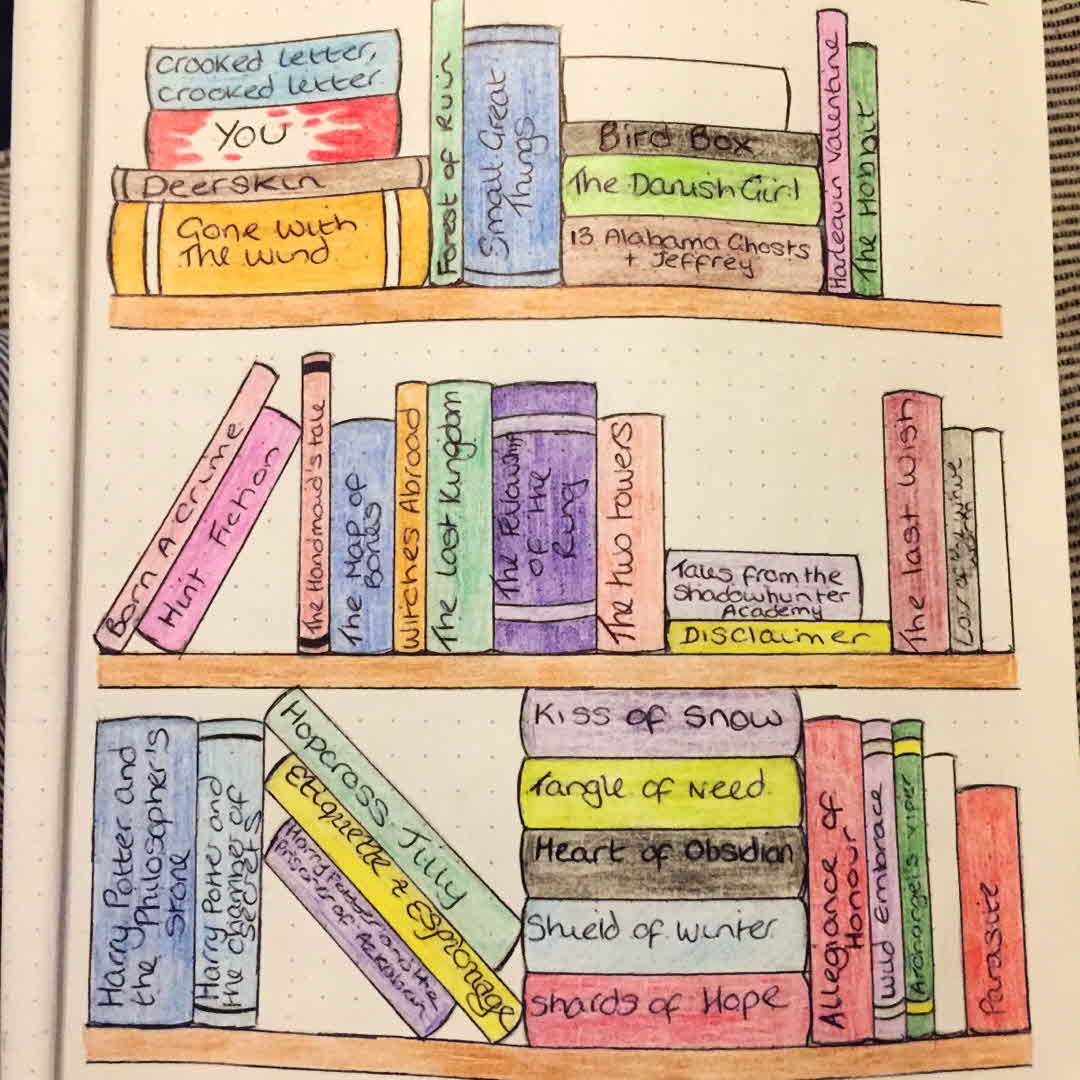 Crooked Letter,
crooked letter
YOU
Deerskin
Gone With
The Wind
Forest of Ruin
Small Great
Things
Bird Box
The Danish Girl
13 Alabama Ghosts
+ Jeffrey
Harlequin Valentine
The Hobbit
Born A Crime
Hint Fiction
The Handmaid's tale
The Map of
Bones
Witches Abroad
The Last Kingdom
The Fellowship
of the
Ring
The two towers
Tales from the
Shadowhunter
Academy
DISCLAIMER
The last wish
of
Harry Potter and
the Philosopher's
Stone
Harry Potter and
the chamber of
Secrets
Hopcross Jilly
Etiquette & Espionage
Harry Potter and the
Prisoner of Azkaban
Kiss of Snow
Tangle of Need
Heart of Obsidian
Shield of Winter
Shards of Hope
Allegiance of
Honour
Wild Embrace
Archangel's Viper
Parasite